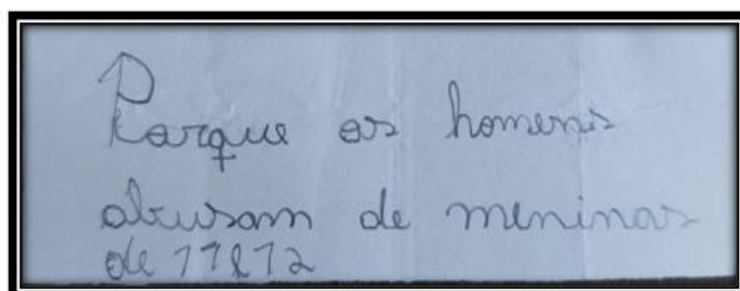 Porque os homens
abusam de meninas
de 11 e 12